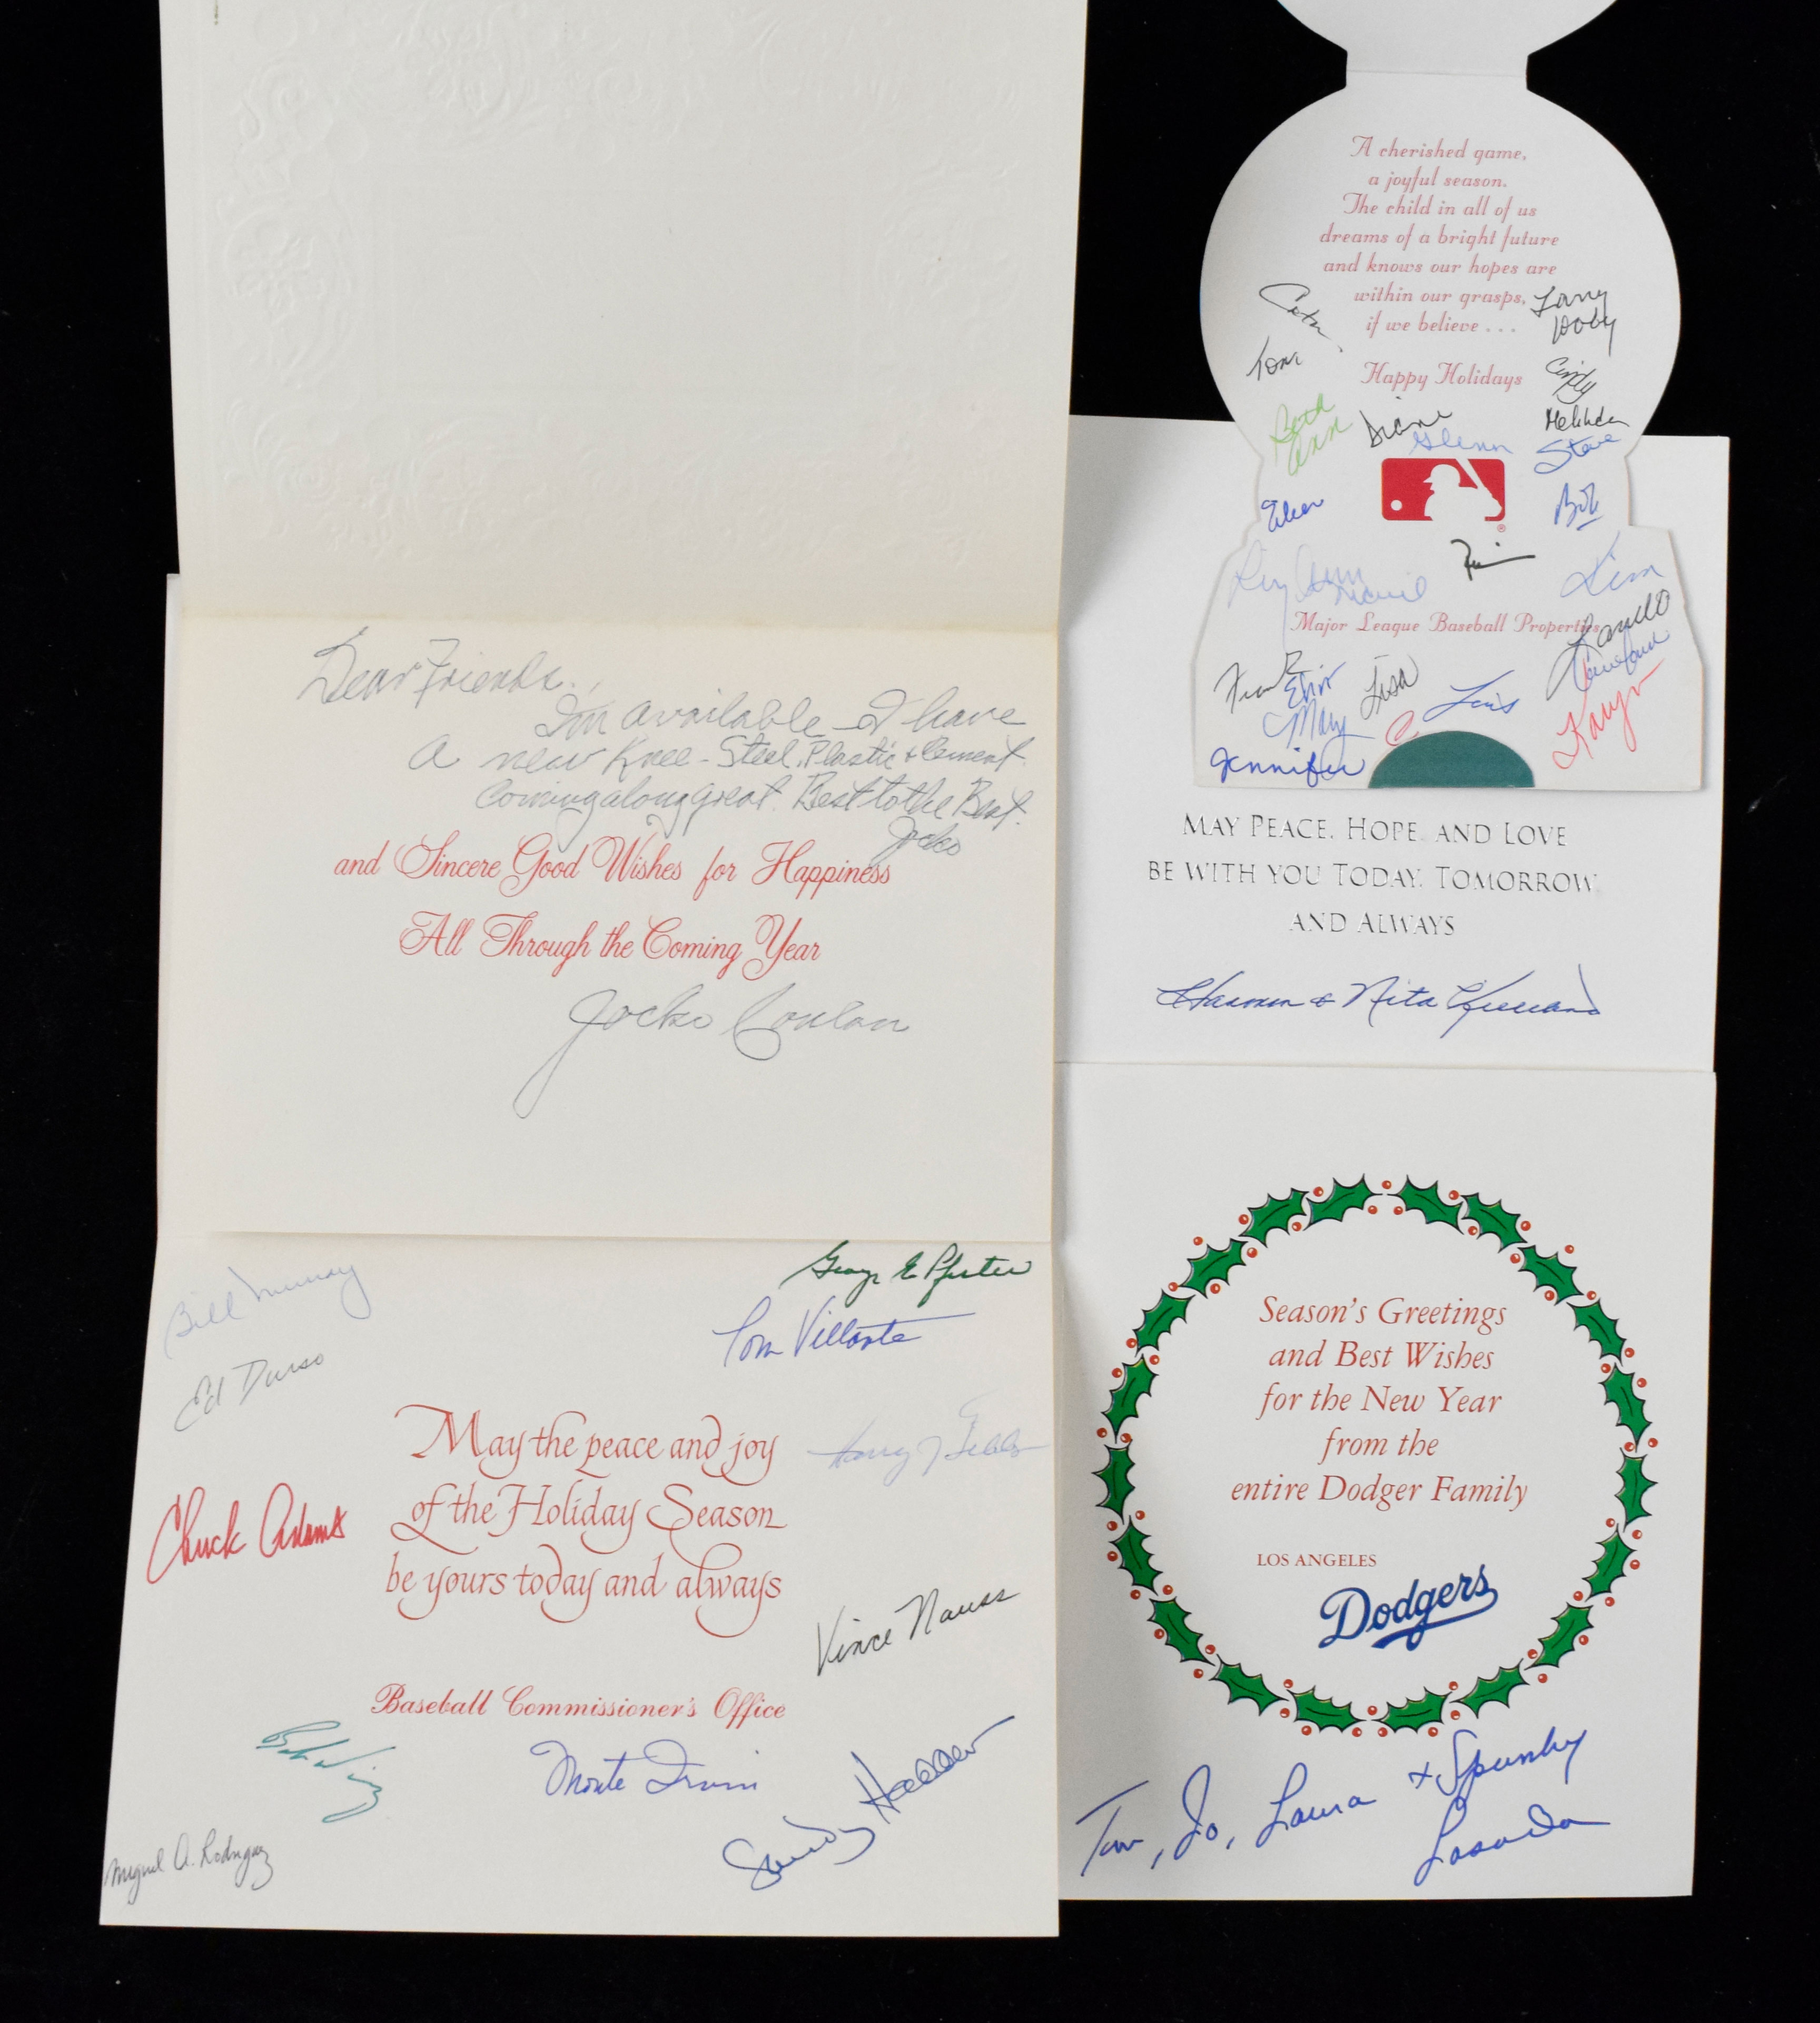 Dear Friends.,
I'm available - I have
a new Knee - Steel, Plastic + Cement.
Coming along great. Best to the Best.
Jocko
and Sincere Good Wishes for Happiness
All Through the Coming Year
Jocko Conlan
Bill Murray
Ed Durso
George E Pfister
Tom Villante
May the peace and joy
of the Holiday Season
be yours today and always
Harry J
Chuck Adams
Vince Nauss
Baseball Commissioner's Office
Bob
Monte Irvin
Sandy Hadden
Miguel A. Rodriguez
A cherished game,
a joyful season.
The child in all of us
dreams of a bright future
and knows our hopes are
within our grasps,
if we believe . . .
Larry
Doby
Toni
Happy Holidays
Cindy
Beth
Ann
Diane
Glenn
Steve
Eileen
Bob
Kim
Major League Baseball Properties
Frank
Lisa
Lois
Mary
Jennifer
Karyn
MAY PEACE, HOPE AND LOVE
BE WITH YOU TODAY, TOMORROW
AND ALWAYS
Harmon & Nita Killebrew
Season's Greetings
and Best Wishes
for the New Year
from the
entire Dodger Family
LOS ANGELES
Dodgers
Tom, Jo, Laura + Spunky
Lasorda